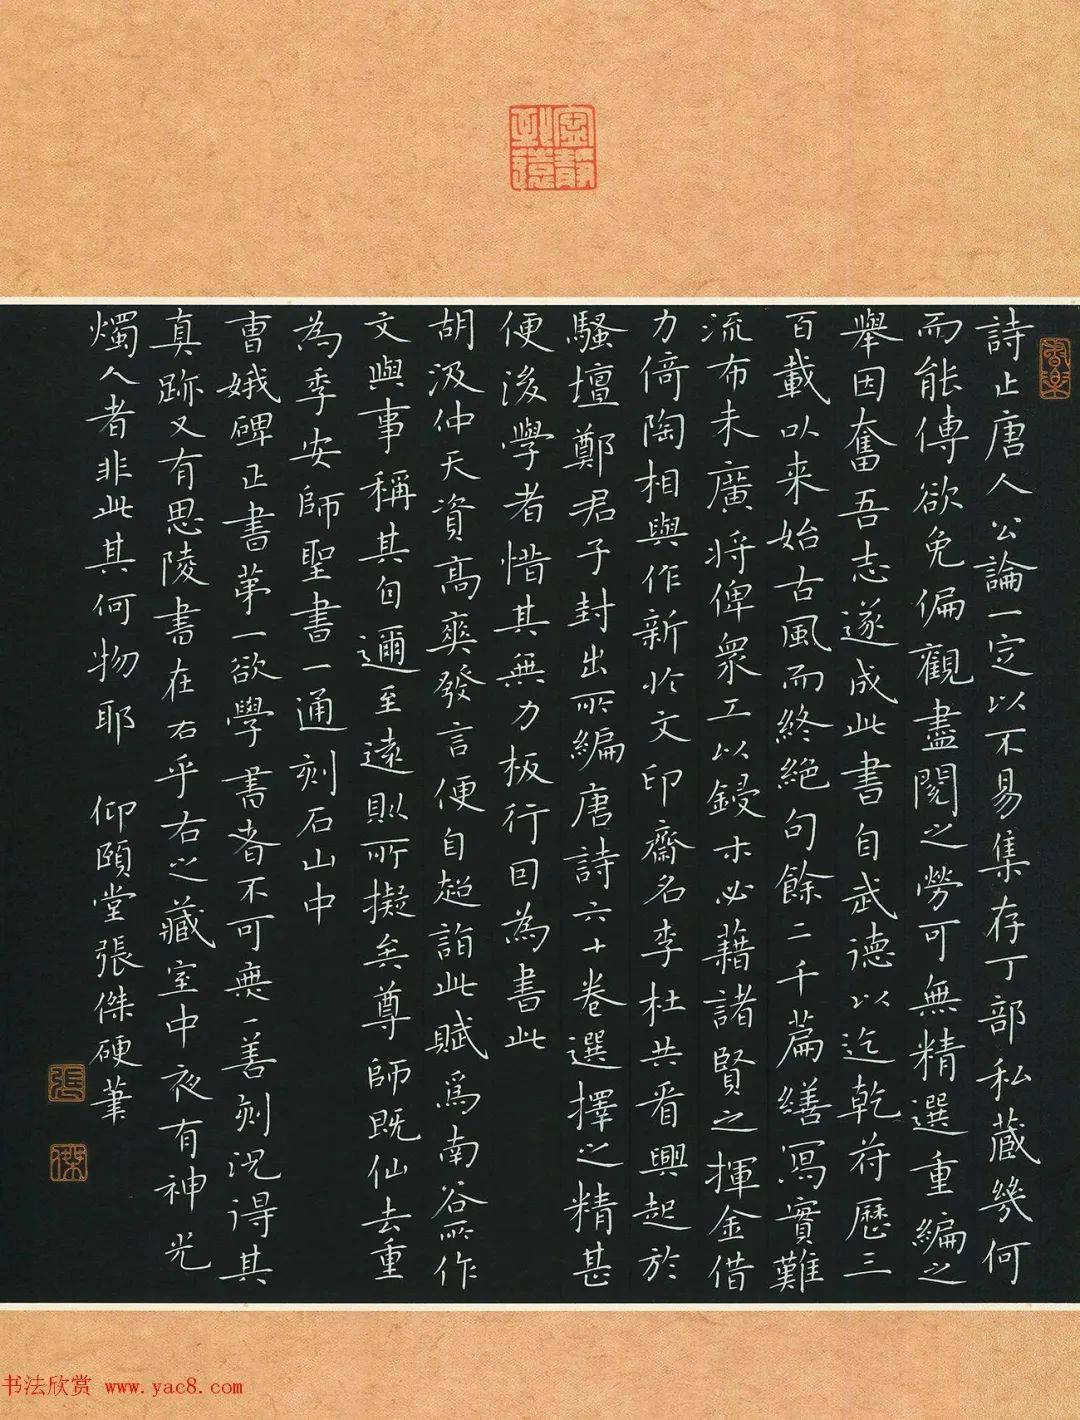 寧靜致遠
詩止唐人公論一定以不易集存丁部私藏幾何
而能傳欲免偏觀盡閱之勞可無精選重編之
舉因奮吾志遂成此書自武德以迄乾符歷三
百載以来始古風而終絕句餘二千篇繕寫實難
流布未廣將俾衆工以鋟木必藉諸賢之揮金借
力倚陶相與作新於文印齋名李杜共看興起於
騷壇鄭君子封出所編唐詩六十卷選擇之精甚
便後學者惜其無力板行回為書此
胡汲仲天資高爽發言便自超詣此賦爲南谷所作
文與事稱其自邇至遠則所擬矣尊師既仙去重
為季安師聖書一通刻石山中
曹娥碑正書第一欲學書者不可無一善刻況得其
真跡又有思陵書在右乎右之藏室中夜有神光
燭人者非此其何物耶 仰頤堂張傑硬筆
張
傑
书法欣赏 www.yac8.com